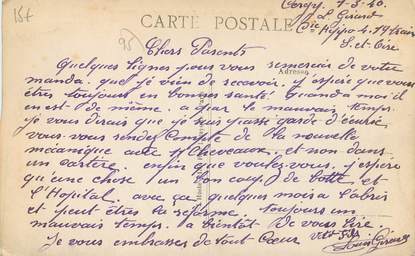 15f
95
Cergy 7-3-40
L. Girard
CARTE POSTALE
Cie Hyppo 4. Train
S. et Oise
Chers Parents
Quelques lignes pour vous remercier de votre
manda. que je vien de recevoir. J'espère que vous
êtres toujours en bonnes santé. Quanda moi il
Adresse
en est de même. a par le mauvais temps.
je vous dirais que je suis passé garde d'écurie
vous vous rendez Compte de la nouvelle
mécanique avec Chevaux. et non dans
un sartère enfin que voulez vous. j'espère
qu'une chose. un bon coup de botte et
l'Hopital. avec ça quelques mois a l'abris
et peut êtres la réforme. toujours un
mauvais temps. a bientôt de vous lire
votre Fils
Je vous embrasses de tout Cœur
Louis Girard